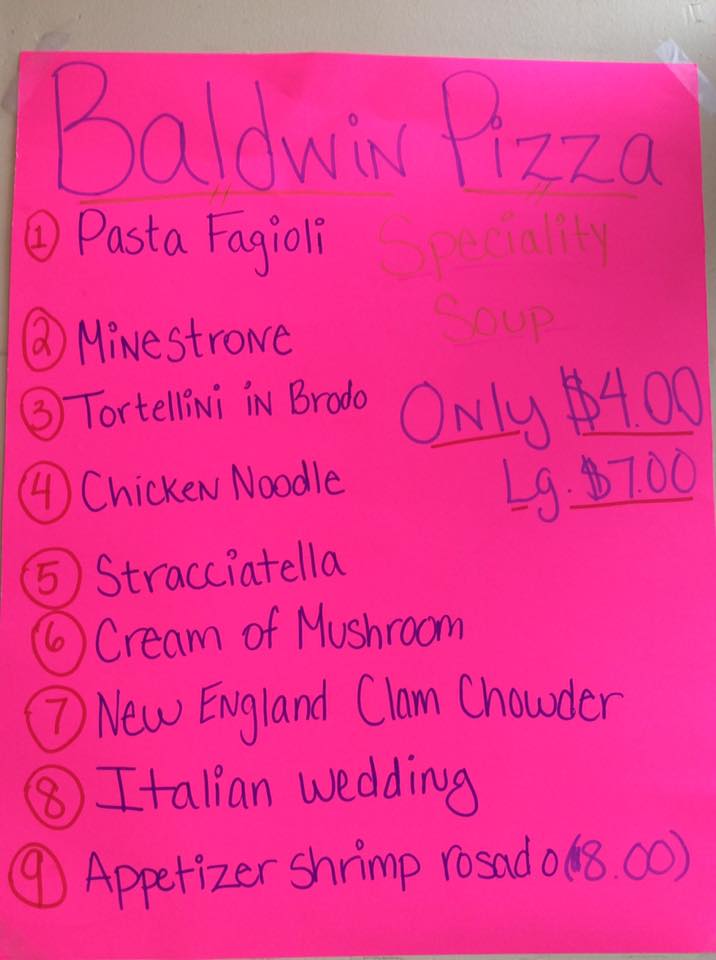 Baldwin Pizza
1 Pasta Fagioli
Speciality
Soup
2 Minestrone
3 Tortellini in Brodo
Only $4.00
4 Chicken Noodle
Lg. $7.00
5 Stracciatella
6 Cream of Mushroom
7 New England Clam Chowder
8 Italian wedding
9 Appetizer shrimp rosado ($8.00)